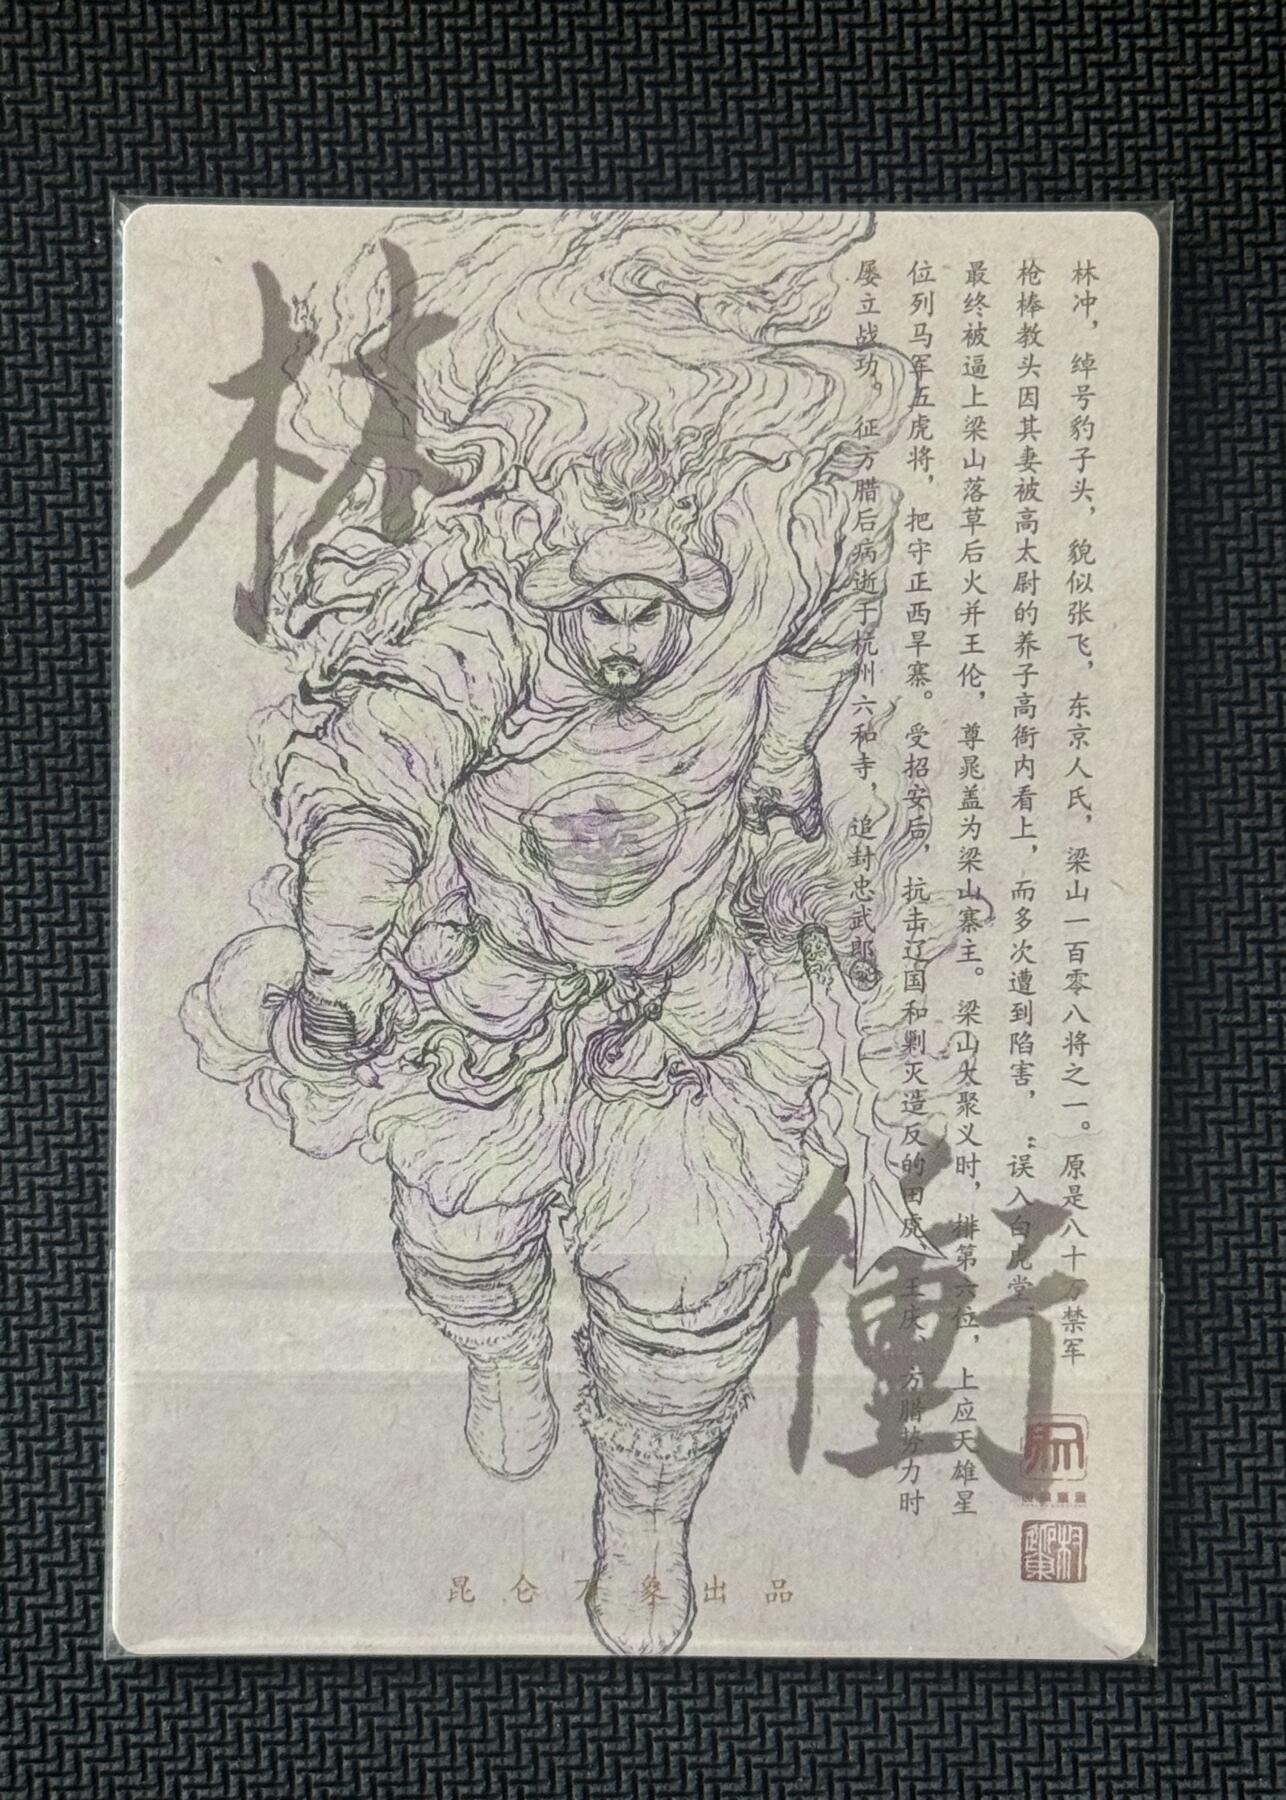 林
衝
林冲，绰号豹子头，貌似张飞，东京人氏，梁山一百零八将之一。原是八十万禁军
枪棒教头因其妻被高太尉的养子高衙内看上，而多次遭到陷害，“误入白虎堂”
最终被逼上梁山落草后火并王伦，尊晁盖为梁山寨主。梁山大聚义时，排第六位，上应天雄星
位列马军五虎将，把守正西旱寨。受招安后，抗击辽国和剿灭造反的田虎、王庆、方腊势力时
屡立战功。征方腊后病逝于杭州六和寺，追封忠武郎
昆仑万象出品